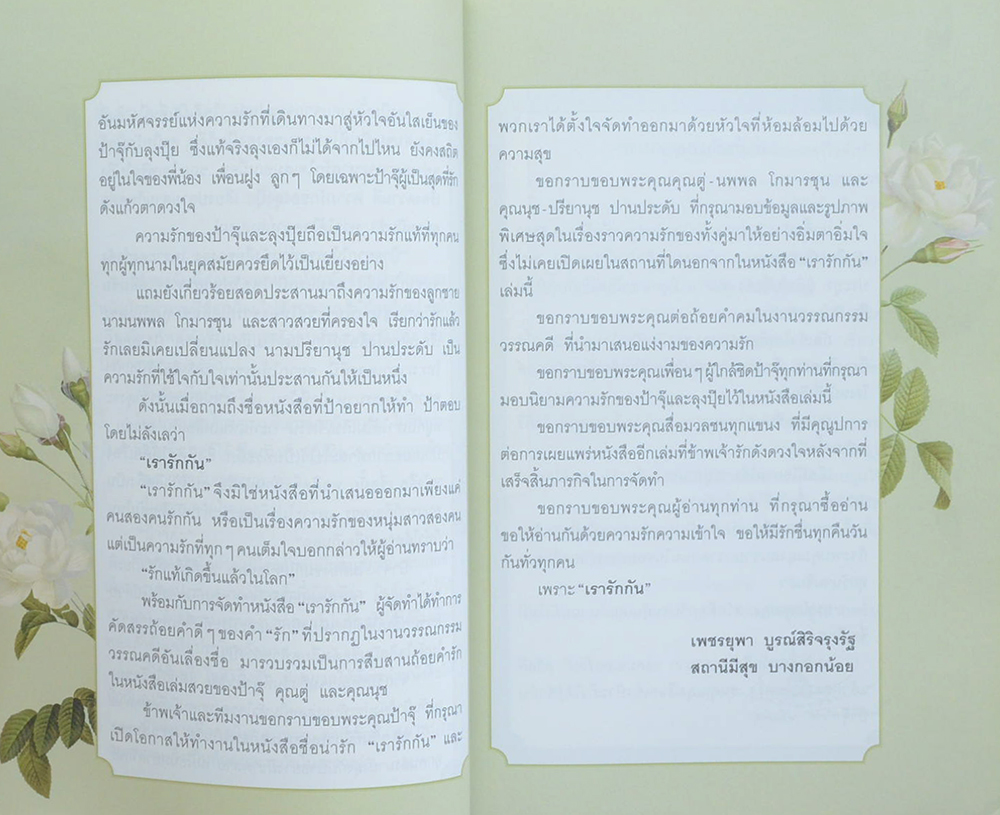 อันมหัศจรรย์แห่งความรักที่เดินทางมาสู่หัวใจอันใสเย็นของ
ป้าจุ๊กับลุงปุ๊ย ซึ่งแท้จริงลุงเองก็ไม่ได้จากไปไหน ยังคงสถิต
อยู่ในใจของพี่น้อง เพื่อนฝูง ลูกๆ โดยเฉพาะป้าจุ๊ผู้เป็นสุดที่รัก
ดังแก้วตาดวงใจ
ความรักของป้าจุ๊และลุงปุ๊ยถือเป็นความรักแท้ที่ทุกคน
ทุกผู้ทุกนามในยุคสมัยควรยึดไว้เป็นเยี่ยงอย่าง
แถมยังเกี่ยวร้อยสอดประสานมาถึงความรักของลูกชาย
นามนพพล โกมารชุน และสาวสวยที่ครองใจ เรียกว่ารักแล้ว
รักเลยมิเคยเปลี่ยนแปลง นามปรียานุช ปานประดับ เป็น
ความรักที่ใช้ใจกับใจเท่านั้นประสานกันให้เป็นหนึ่ง
ดังนั้นเมื่อถามถึงชื่อหนังสือที่ป้าอยากให้ทำ ป้าตอบ
โดยไม่ลังเลว่า
“เรารักกัน”
“เรารักกัน” จึงมิใช่หนังสือที่นำเสนอออกมาเพียงแค่
คนสองคนรักกัน หรือเป็นเรื่องความรักของหนุ่มสาวสองคน
แต่เป็นความรักที่ทุกๆ คนเต็มใจบอกกล่าวให้ผู้อ่านทราบว่า
“รักแท้เกิดขึ้นแล้วในโลก”
พร้อมกับการจัดทำหนังสือ “เรารักกัน” ผู้จัดทำได้ทำการ
คัดสรรถ้อยคำดีๆ ของคำ “รัก” ที่ปรากฏในงานวรรณกรรม
วรรณคดีอันเลื่องชื่อ มารวบรวมเป็นการสืบสานถ้อยคำรัก
ในหนังสือเล่มสวยของป้าจุ๊ คุณตู่ และคุณนุช
ข้าพเจ้าและทีมงานขอกราบขอบพระคุณป้าจุ๊ ที่กรุณา
เปิดโอกาสให้ทำงานในหนังสือชื่อน่ารัก “เรารักกัน” และ
พวกเราได้ตั้งใจจัดทำออกมาด้วยหัวใจที่ห้อมล้อมไปด้วย
ความสุข
ขอกราบขอบพระคุณคุณตู่-นพพล โกมารชุน และ
คุณนุช-ปรียานุช ปานประดับ ที่กรุณามอบข้อมูลและรูปภาพ
พิเศษสุดในเรื่องราวความรักของทั้งคู่มาให้อย่างอิ่มตาอิ่มใจ
ซึ่งไม่เคยเปิดเผยในสถานที่ใดนอกจากในหนังสือ “เรารักกัน”
เล่มนี้
ขอกราบขอบพระคุณต่อถ้อยคำคมในงานวรรณกรรม
วรรณคดี ที่นำมาเสนอแง่งามของความรัก
ขอกราบขอบพระคุณเพื่อนๆ ผู้ใกล้ชิดป้าจุ๊ทุกท่านที่กรุณา
มอบนิยามความรักของป้าจุ๊และลุงปุ๊ยไว้ในหนังสือเล่มนี้
ขอกราบขอบพระคุณสื่อมวลชนทุกแขนง ที่มีคุณูปการ
ต่อการเผยแพร่หนังสืออีกเล่มที่ข้าพเจ้ารักดังดวงใจหลังจากที่
เสร็จสิ้นภารกิจในการจัดทำ
ขอกราบขอบพระคุณผู้อ่านทุกท่าน ที่กรุณาซื้ออ่าน
ขอให้อ่านกันด้วยความรักความเข้าใจ ขอให้มีรักชื่นทุกคืนวัน
กันทั่วทุกคน
เพราะ “เรารักกัน”
เพชรยุพา บูรณ์สิริจรุงรัฐ
สถานีมีสุข บางกอกน้อย